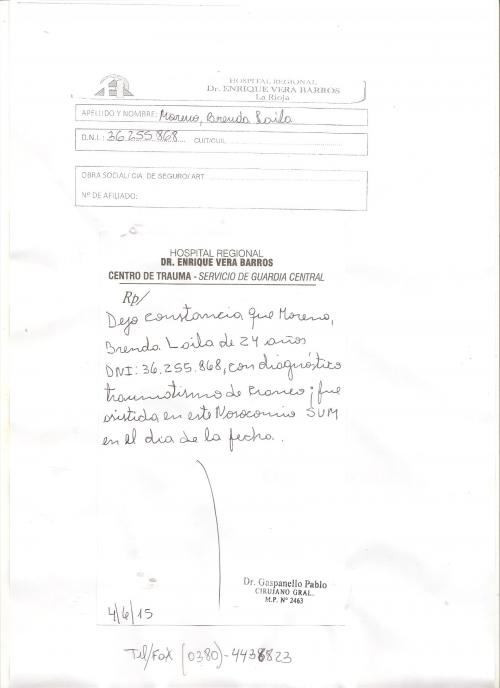 HOSPITAL REGIONAL
Dr. ENRIQUE VERA BARROS
La Rioja
APELLIDO Y NOMBRE: Moreno, Brenda Laila
D.N.I.: 36.255.868 CUIT/CUIL
OBRA SOCIAL/ CIA. DE SEGURO/ ART
Nº DE AFILIADO:
HOSPITAL REGIONAL
DR. ENRIQUE VERA BARROS
CENTRO DE TRAUMA - SERVICIO DE GUARDIA CENTRAL
Rp/
Dejo constancia que Moreno,
Brenda Laila de 24 años
DNI: 36.255.868, con diagnóstico
traumatismo de craneo; fue
asistida en este Nosocomio SUM
en el dia de la fecha.
Dr. Gaspanello Pablo
CIRUJANO GRAL.
M.P. Nº 2463
4/6/15
Tel/Fax (0380)-4438823